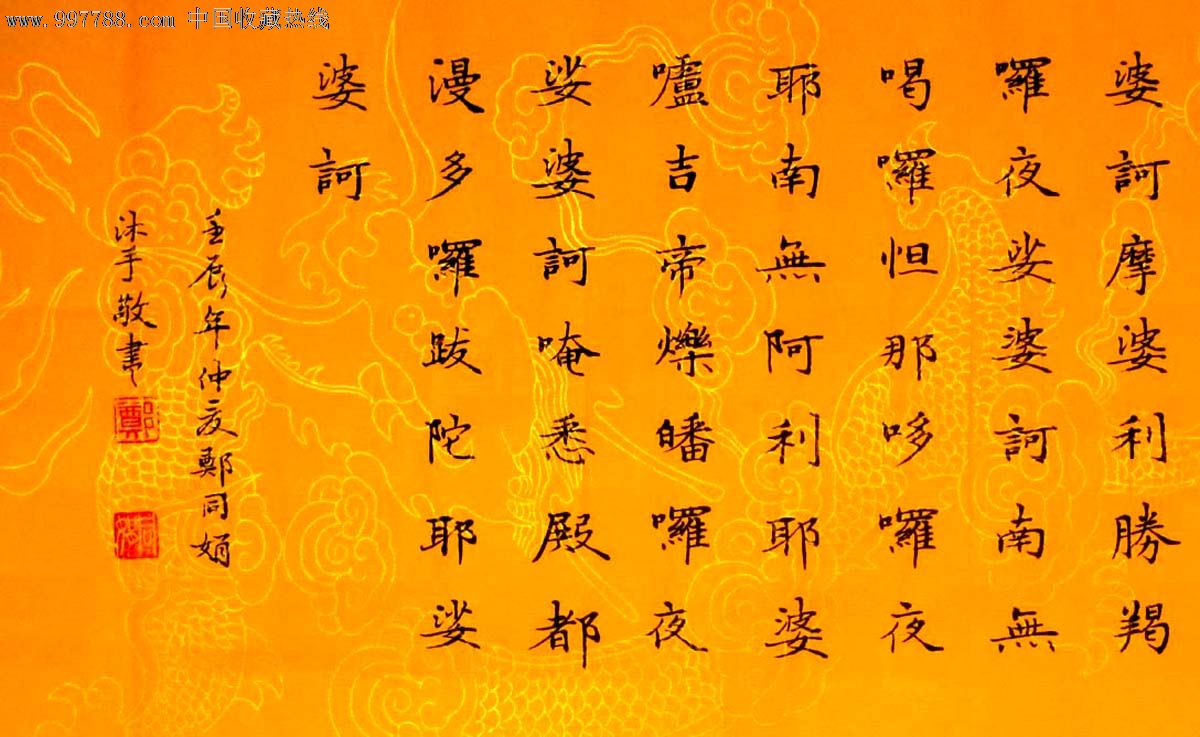 www.997788.com 中国收藏热线
婆訶摩婆利勝羯
囉夜娑婆訶南無
喝囉怛那哆囉夜
耶南無阿利耶婆
嚧吉帝爍皤囉夜
娑婆訶唵悉殿都
漫多囉跋陀耶娑
婆訶
壬辰年仲夏鄭同娟
沐手敬書
鄭